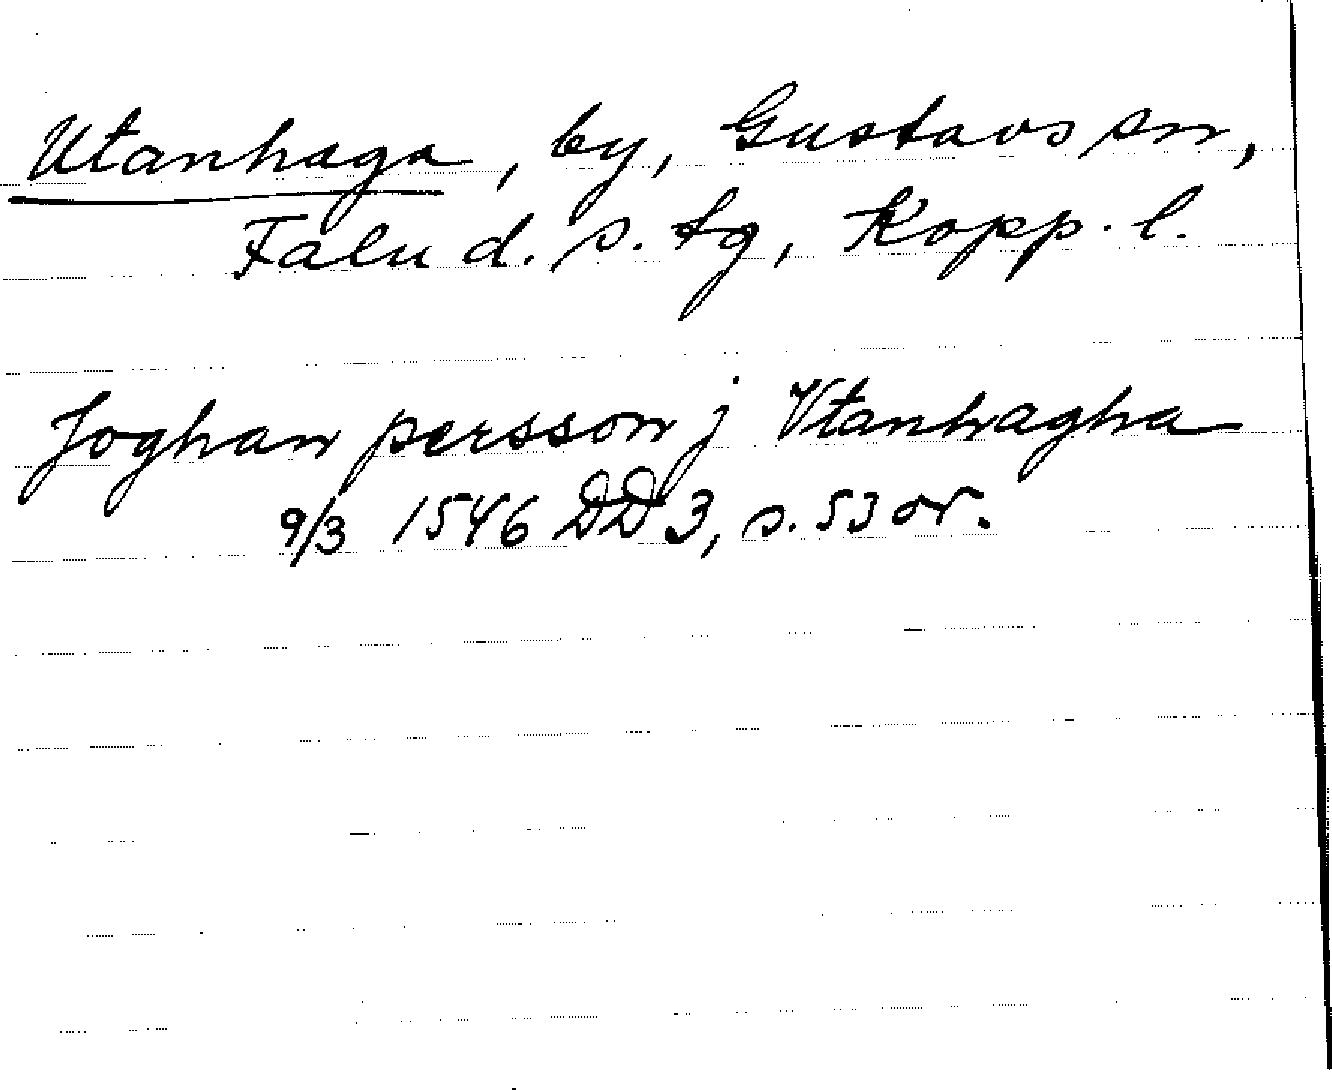 Utanhaga, by, Gustavs sn,
Falu d. s. tg, Kopp. l.
Joghan persson j Vtanhagha
9/3 1546 DD 3, s. 53 or.